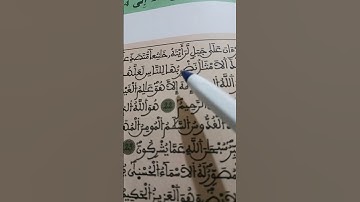 ءَانَ عَلَىٰ جَبَلٖ لَّرَأَيْتَهُۥ خَٰشِعاٗ مُّتَصَدِّعاٗ
اَ۬لَامْثَٰلُ نَضْرِبُهَا لِلنَّاسِ لَعَلَّهُمْ
اَ۬للَّهُ إِلَّا هُوَ عَٰلِمُ اُ۬لْغَيْ
اُ۬لرَّحِيمُ ۝ هُوَ اَ۬للَّهُ
اُ۬لْقُدُّوسُ اُ۬لسَّلَٰمُ اُ۬لْمُومِنُ اُ۬لْ
سُبْحَٰنَ اَ۬للَّهِ عَمَّا يُشْرِكُونَ ۝
مُصَوِّرُ لَهُ اُ۬لَاسْمَآءُ اُ۬لْحُسْنَىٰ
وَهُوَ اَ۬لْعَزِيزُ اُ۬لْحَكِيمُ